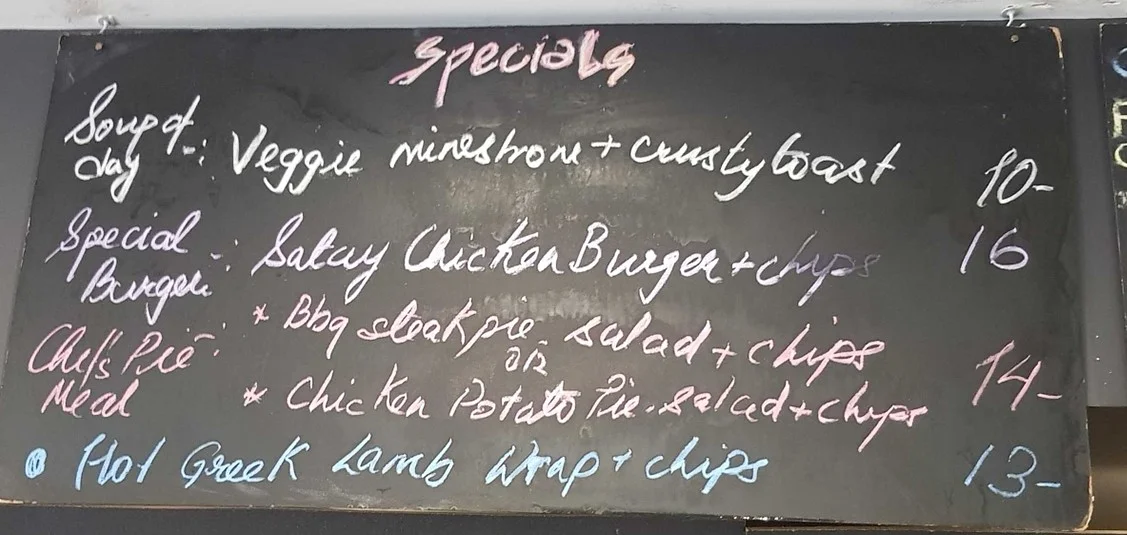 Specials
Soup of day -: Veggie minestrone + crusty toast 10-
Special Burger -: Satay Chicken Burger + chips 16
Chef's Pie Meal : * Bbq steak pie - salad + chips 14-
OR
* Chicken Potato Pie - salad + chips
• Hot Greek Lamb Wrap + chips 13-